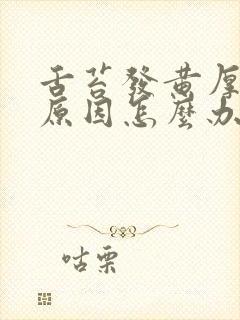 舌苔發黃厚
原因怎麼办
咕栗